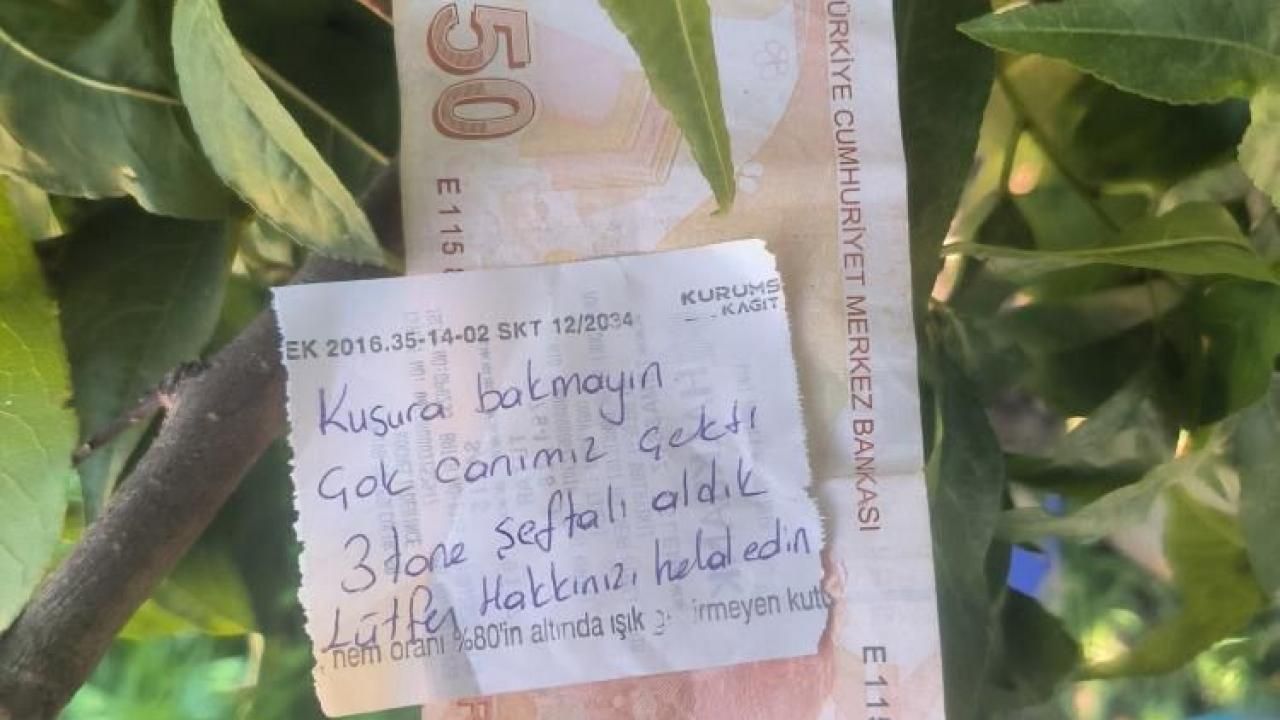 50
E 115
TÜRKİYE CUMHURİYET MERKEZ BANKASI
KURUMS
KAGIT
EK 2016.35-14-02 SKT 12/2034
Kusura bakmayın
Çok canımız çekti
3 tane şeftali aldık
Lütfen Hakkınızı helal edin
nem oranı %80'in altında ışık
E 115